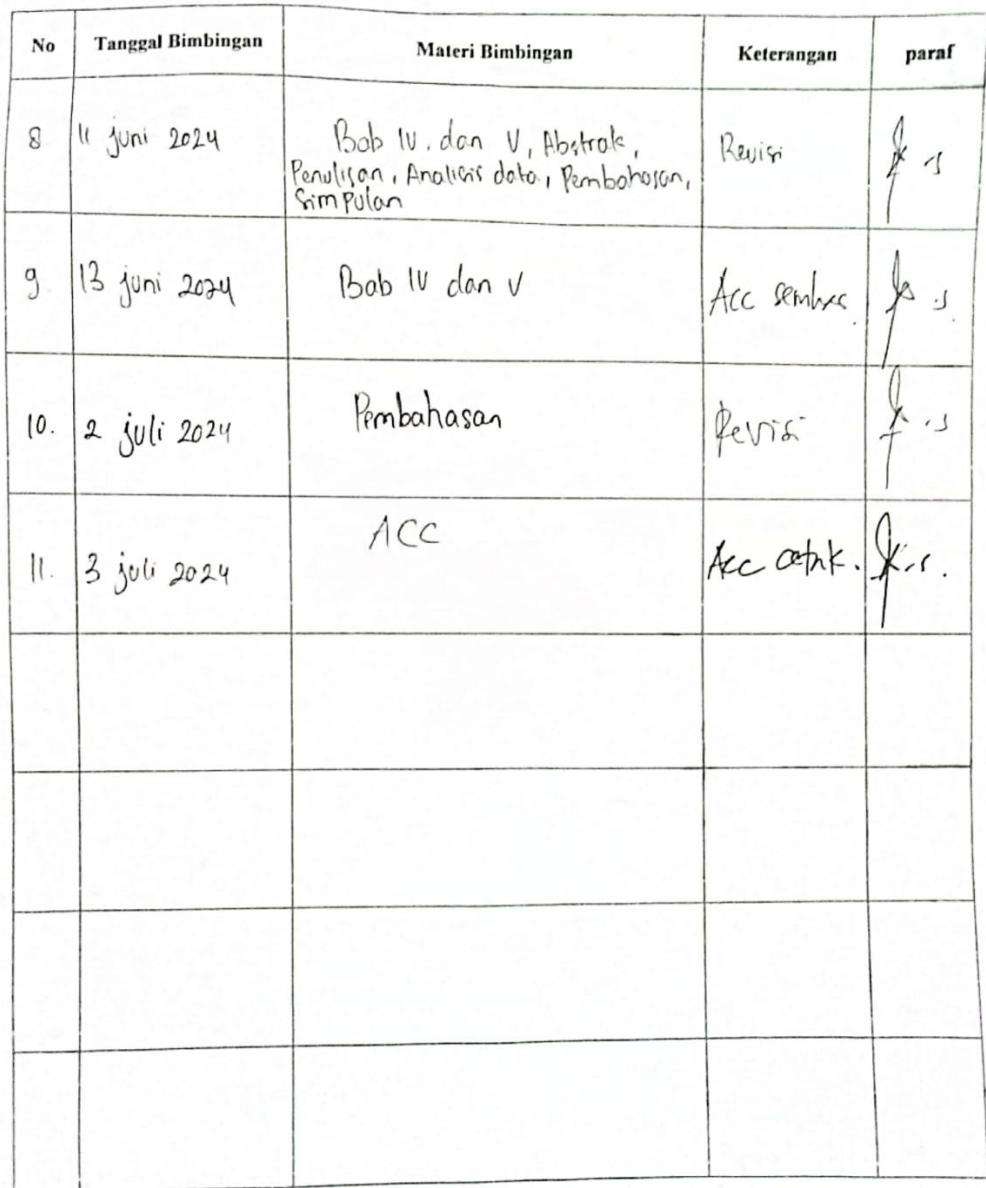 No Tanggal Bimbingan Materi Bimbingan Keterangan paraf
8 11 juni 2024 Bab IV. dan V, Abstrak, Revisi
Penulisan, Analisis data, Pembahasan,
Simpulan
9 13 juni 2024 Bab IV dan V Acc semhas.
10. 2 juli 2024 Pembahasan Revisi
11. 3 juli 2024 ACC Acc cetak.